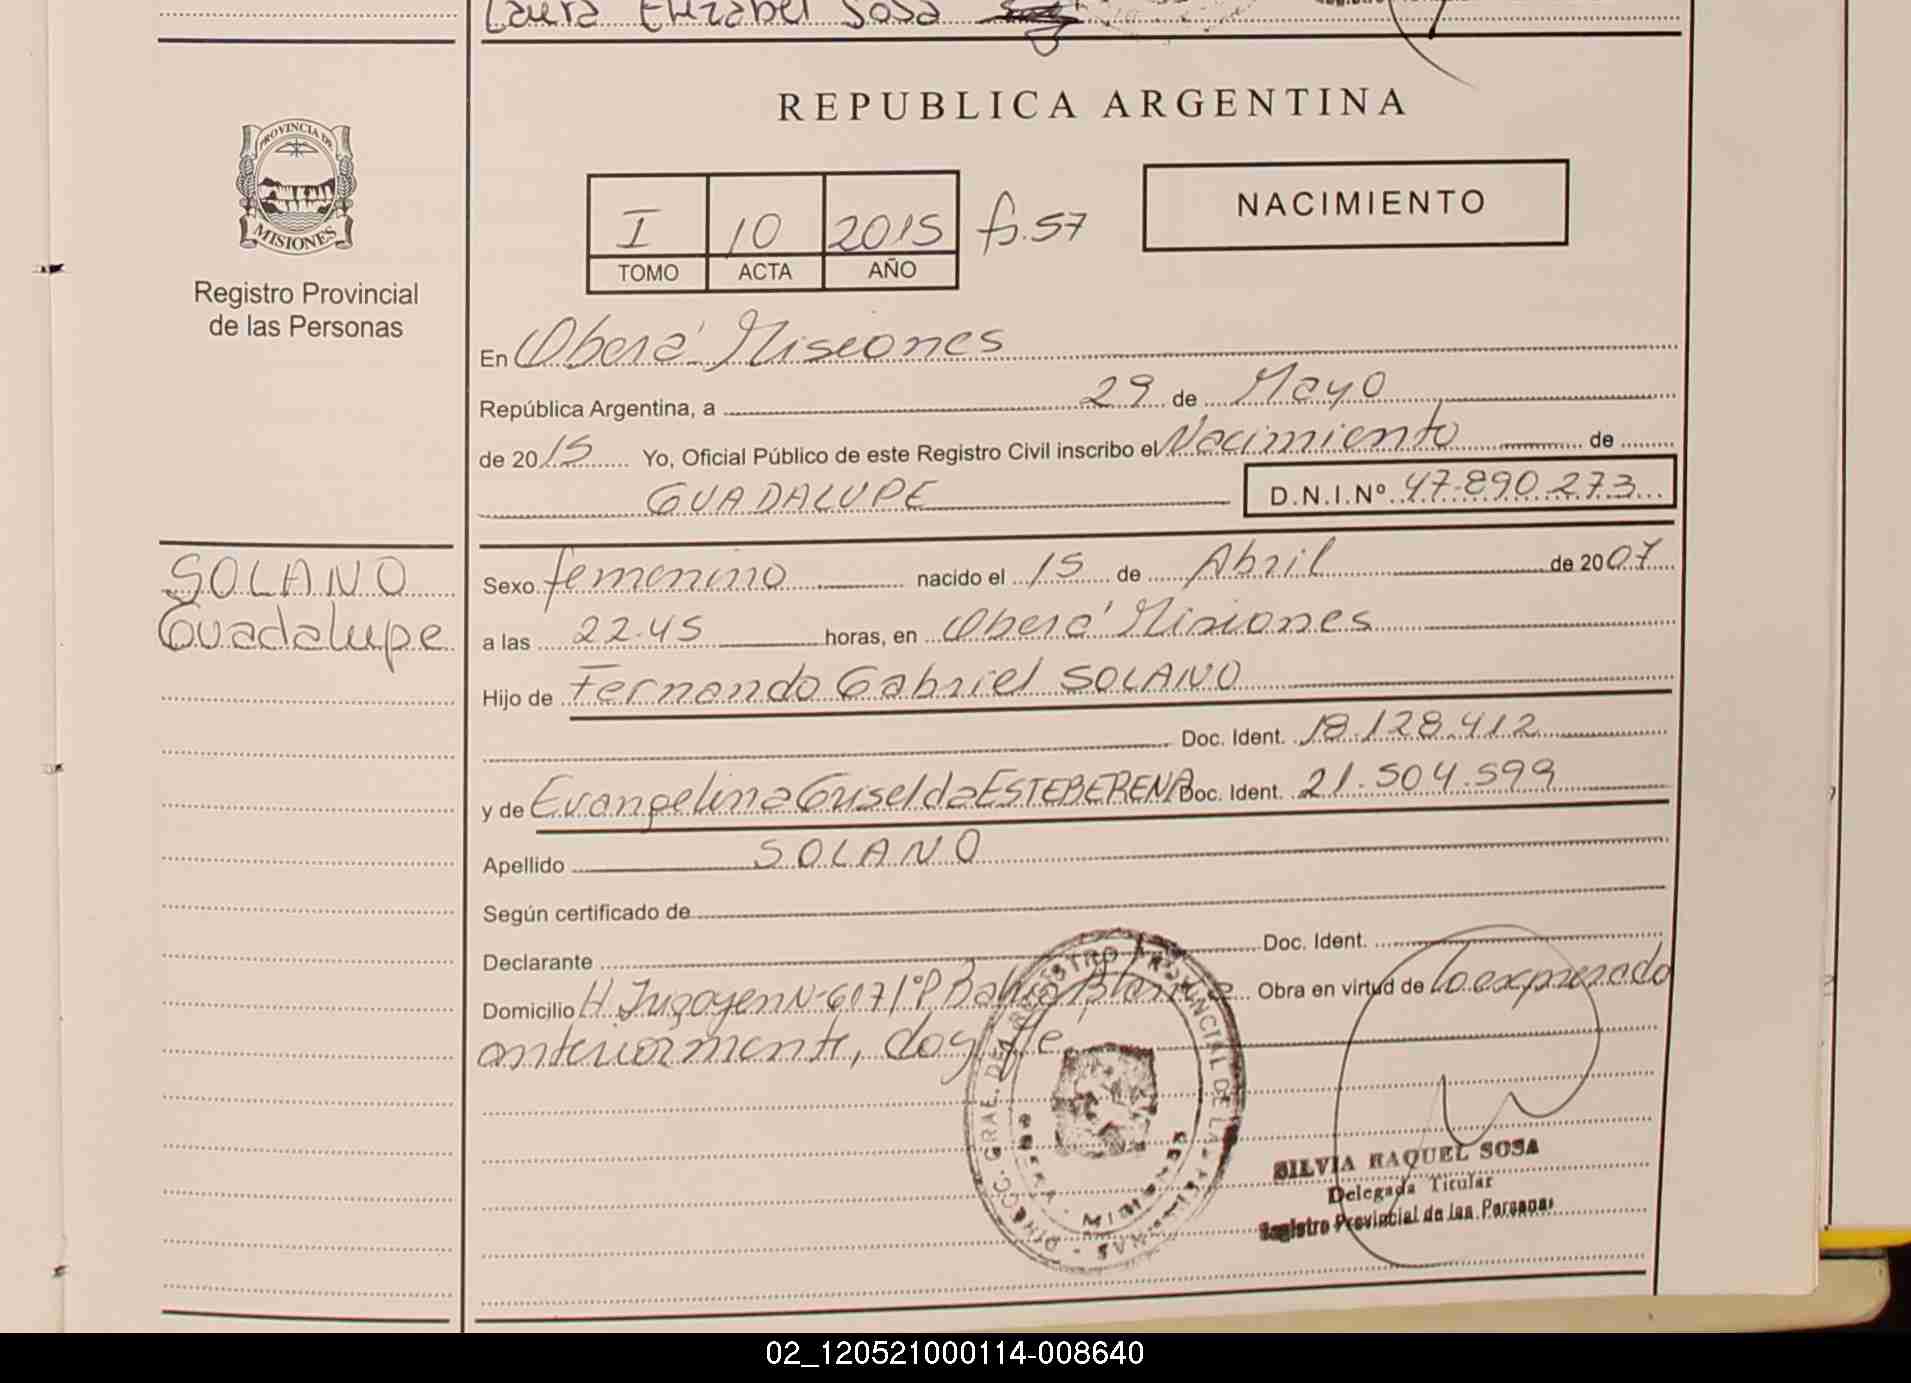 Laura Elizabel Sosa
REPUBLICA ARGENTINA
PROVINCIA DE
MISIONES
Registro Provincial
de las Personas
I 10 2015 fo.57
TOMO ACTA AÑO
NACIMIENTO
En Oberá Misiones
República Argentina, a 29 de Mayo
de 2015 Yo, Oficial Público de este Registro Civil inscribo el Nacimiento de
GUADALUPE D.N.I.Nº 47.890.273
SOLANO
Guadalupe
Sexo femenino nacido el 15 de Abril de 2007
a las 22.45 horas, en Oberá Misiones
Hijo de Fernando Gabriel SOLANO
Doc. Ident. 18.128.412
y de Evangelina Griselda ESTEBERENA Doc. Ident. 21.504.599
Apellido SOLANO
Según certificado de
Declarante Doc. Ident.
Domicilio H. Yrigoyen N-607 1°P Bahia Blanca Obra en virtud de lo expresado
anteriormente, doy fe.
DIRECC. GRAL. DEL REGISTRO PROVINCIAL DE LAS PERSONAS
OBERA - MISIONES
SILVIA RAQUEL SOSA
Delegada Titular
Registro Provincial de las Personas
02_120521000114-008640